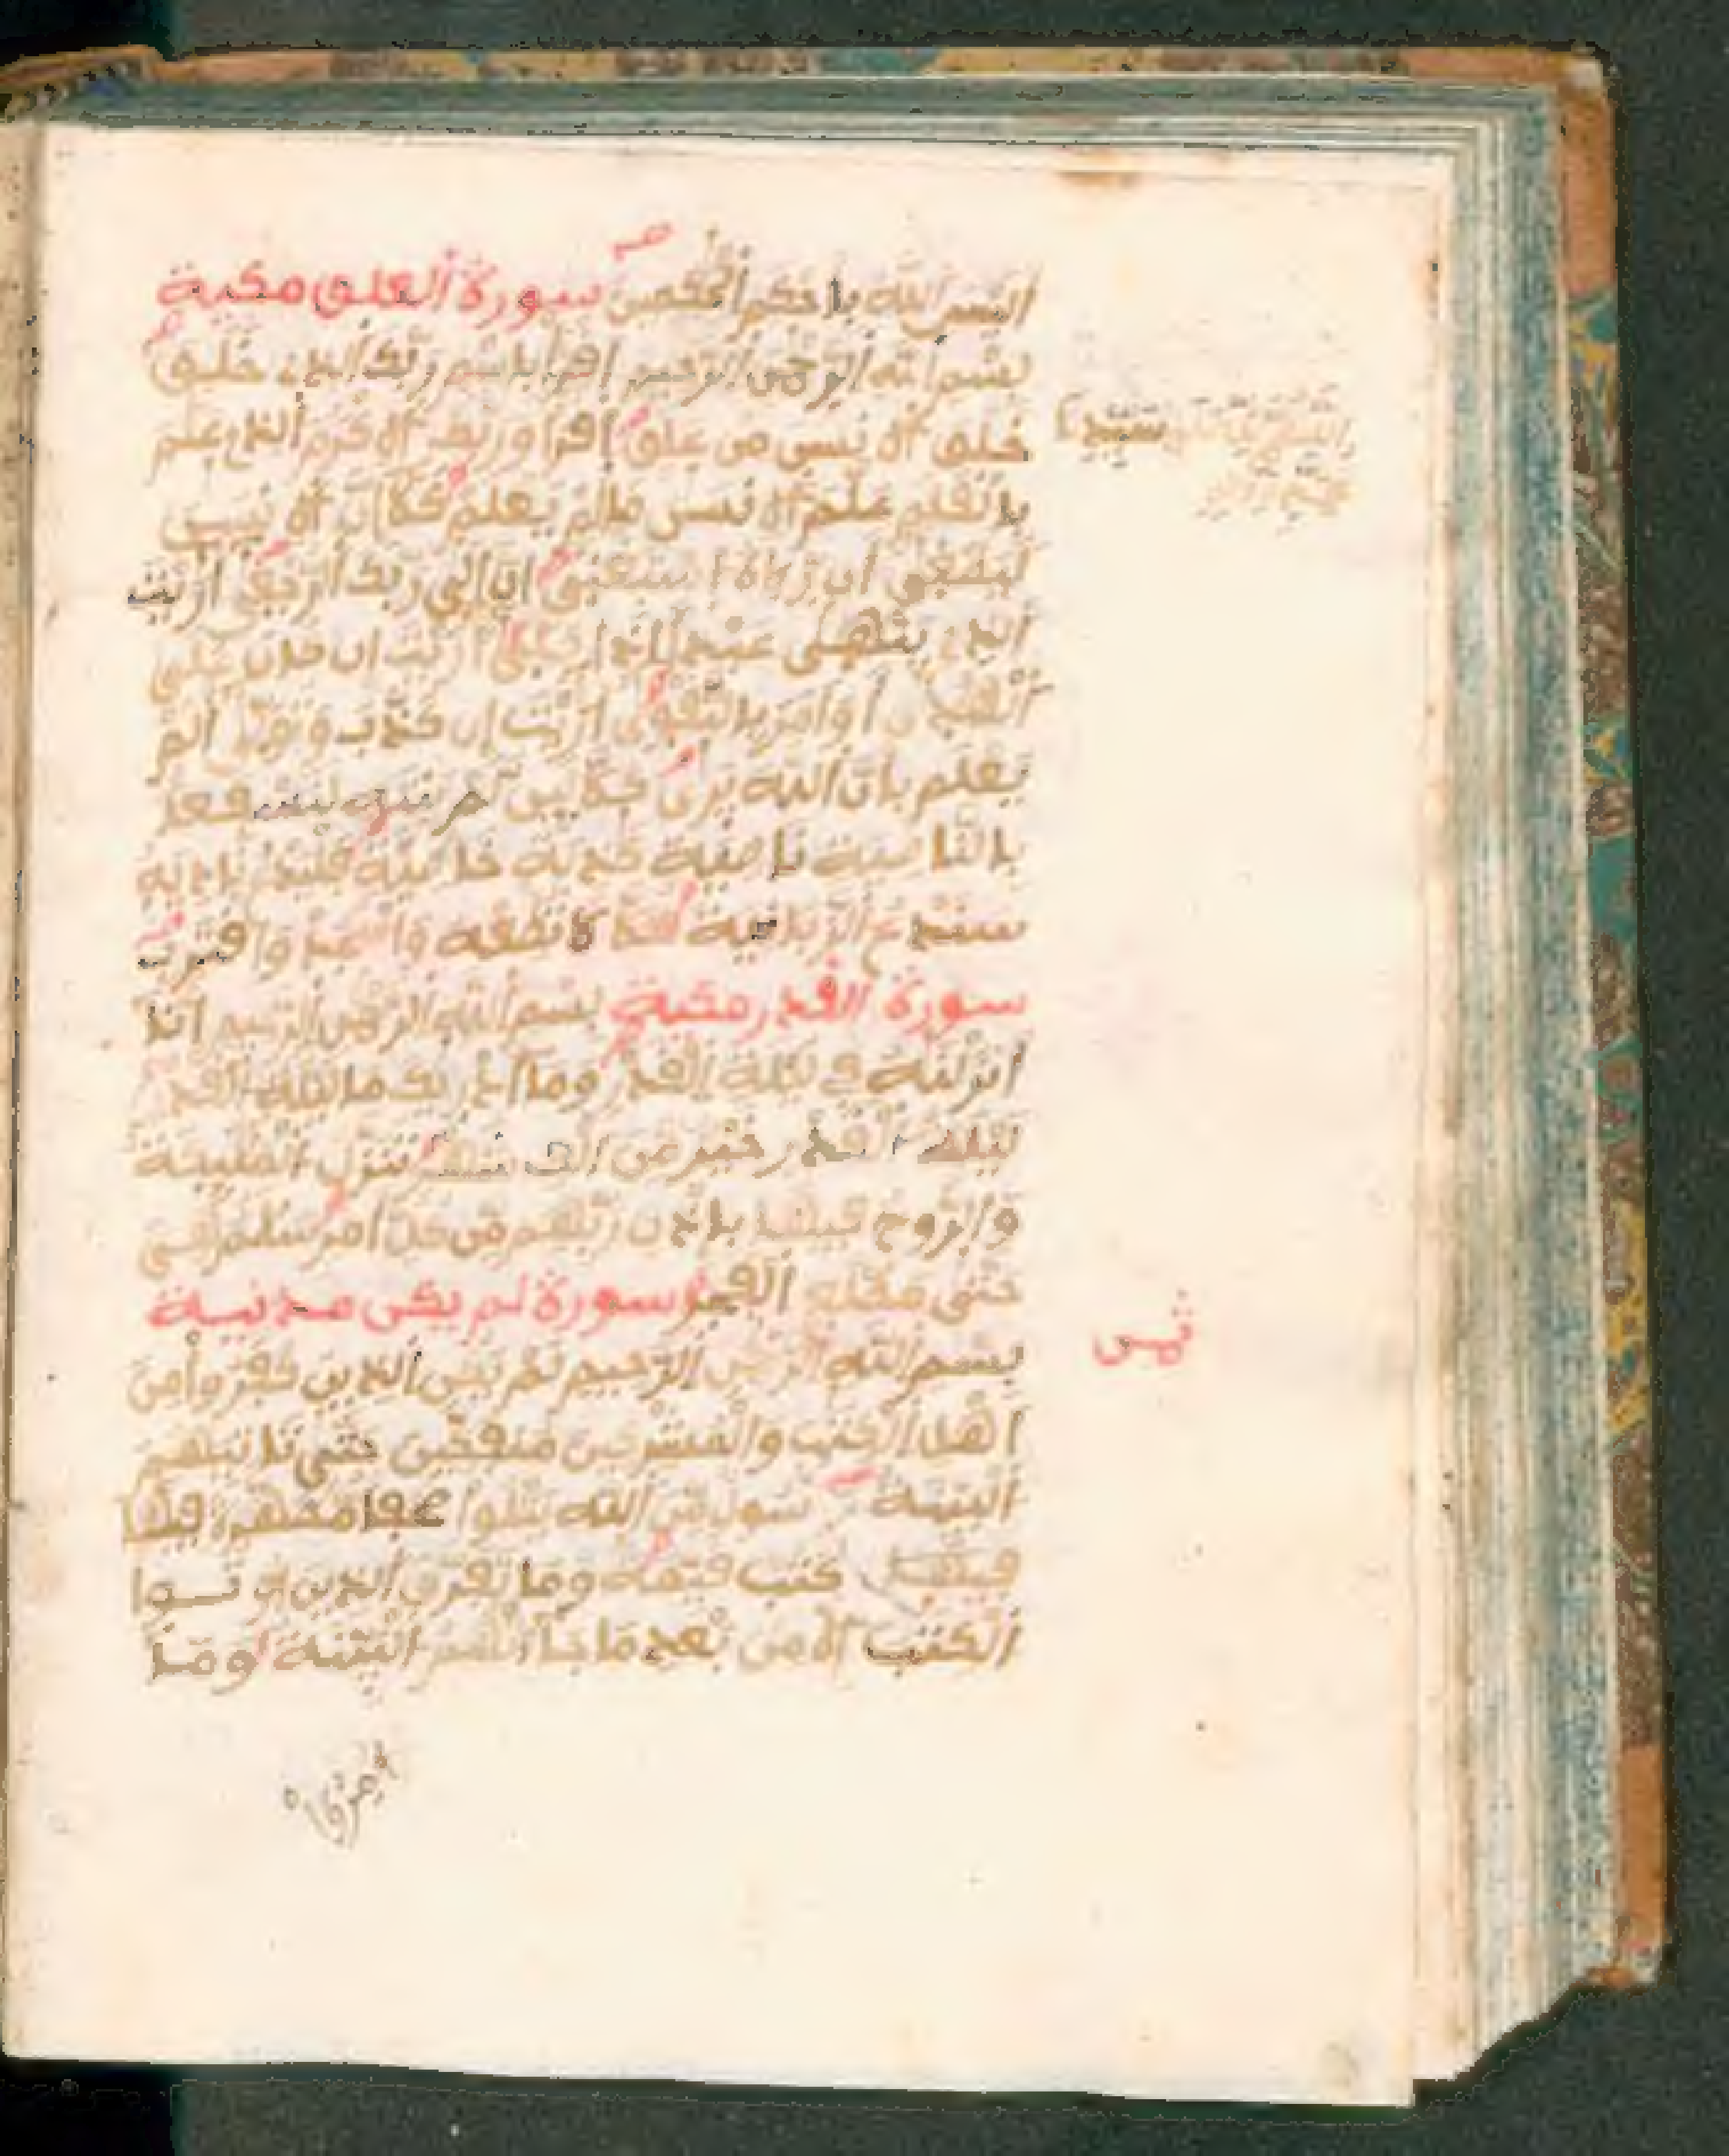 اليس الله باحكم الحكمين سورة العلق مكية
بسم الله الرحمن الرحيم افرا باسم ربك الذي خلق
خلق الانسن من علق افرا وربك الاكرم الذي علم
بالقلم علم الانسن مالم يعلم كلا ان الانسن
ليطغى ان راه استغنى ان الى ربك الرجعى اريت
الذي ينهى عبدا اذا صلى اريت ان كان على
الهدى او امر بالتقوى اريت ان كذب وتولى الم
يعلم بان الله يرى كلا لين لم ينته لنسفعا
بالناصية ناصية كذبة خاطية فليدع ناديه
سندع الزبانية كلا لا تطعه واسجد واقترب
سورة القدر مكية بسم الله الرحمن الرحيم انا
انزلنه في ليلة القدر وما ادريك ما ليلة القدر
ليلة القدر خير من الف شهر تنزل المليكة
والروح فيها باذن ربهم من كل امر سلم هي
حتى مطلع الفجر سورة لم يكن مدنية
بسم الله الرحمن الرحيم لم يكن الذين كفروا من
اهل الكتب والمشركين منفكين حتى تاتيهم
البينة رسول من الله يتلوا صحفا مطهرة فيها
فيها كتب قيمة وما تفرق الذين اوتوا
الكتب الا من بعد ما جاءتهم البينة وما
ثمن
امروا